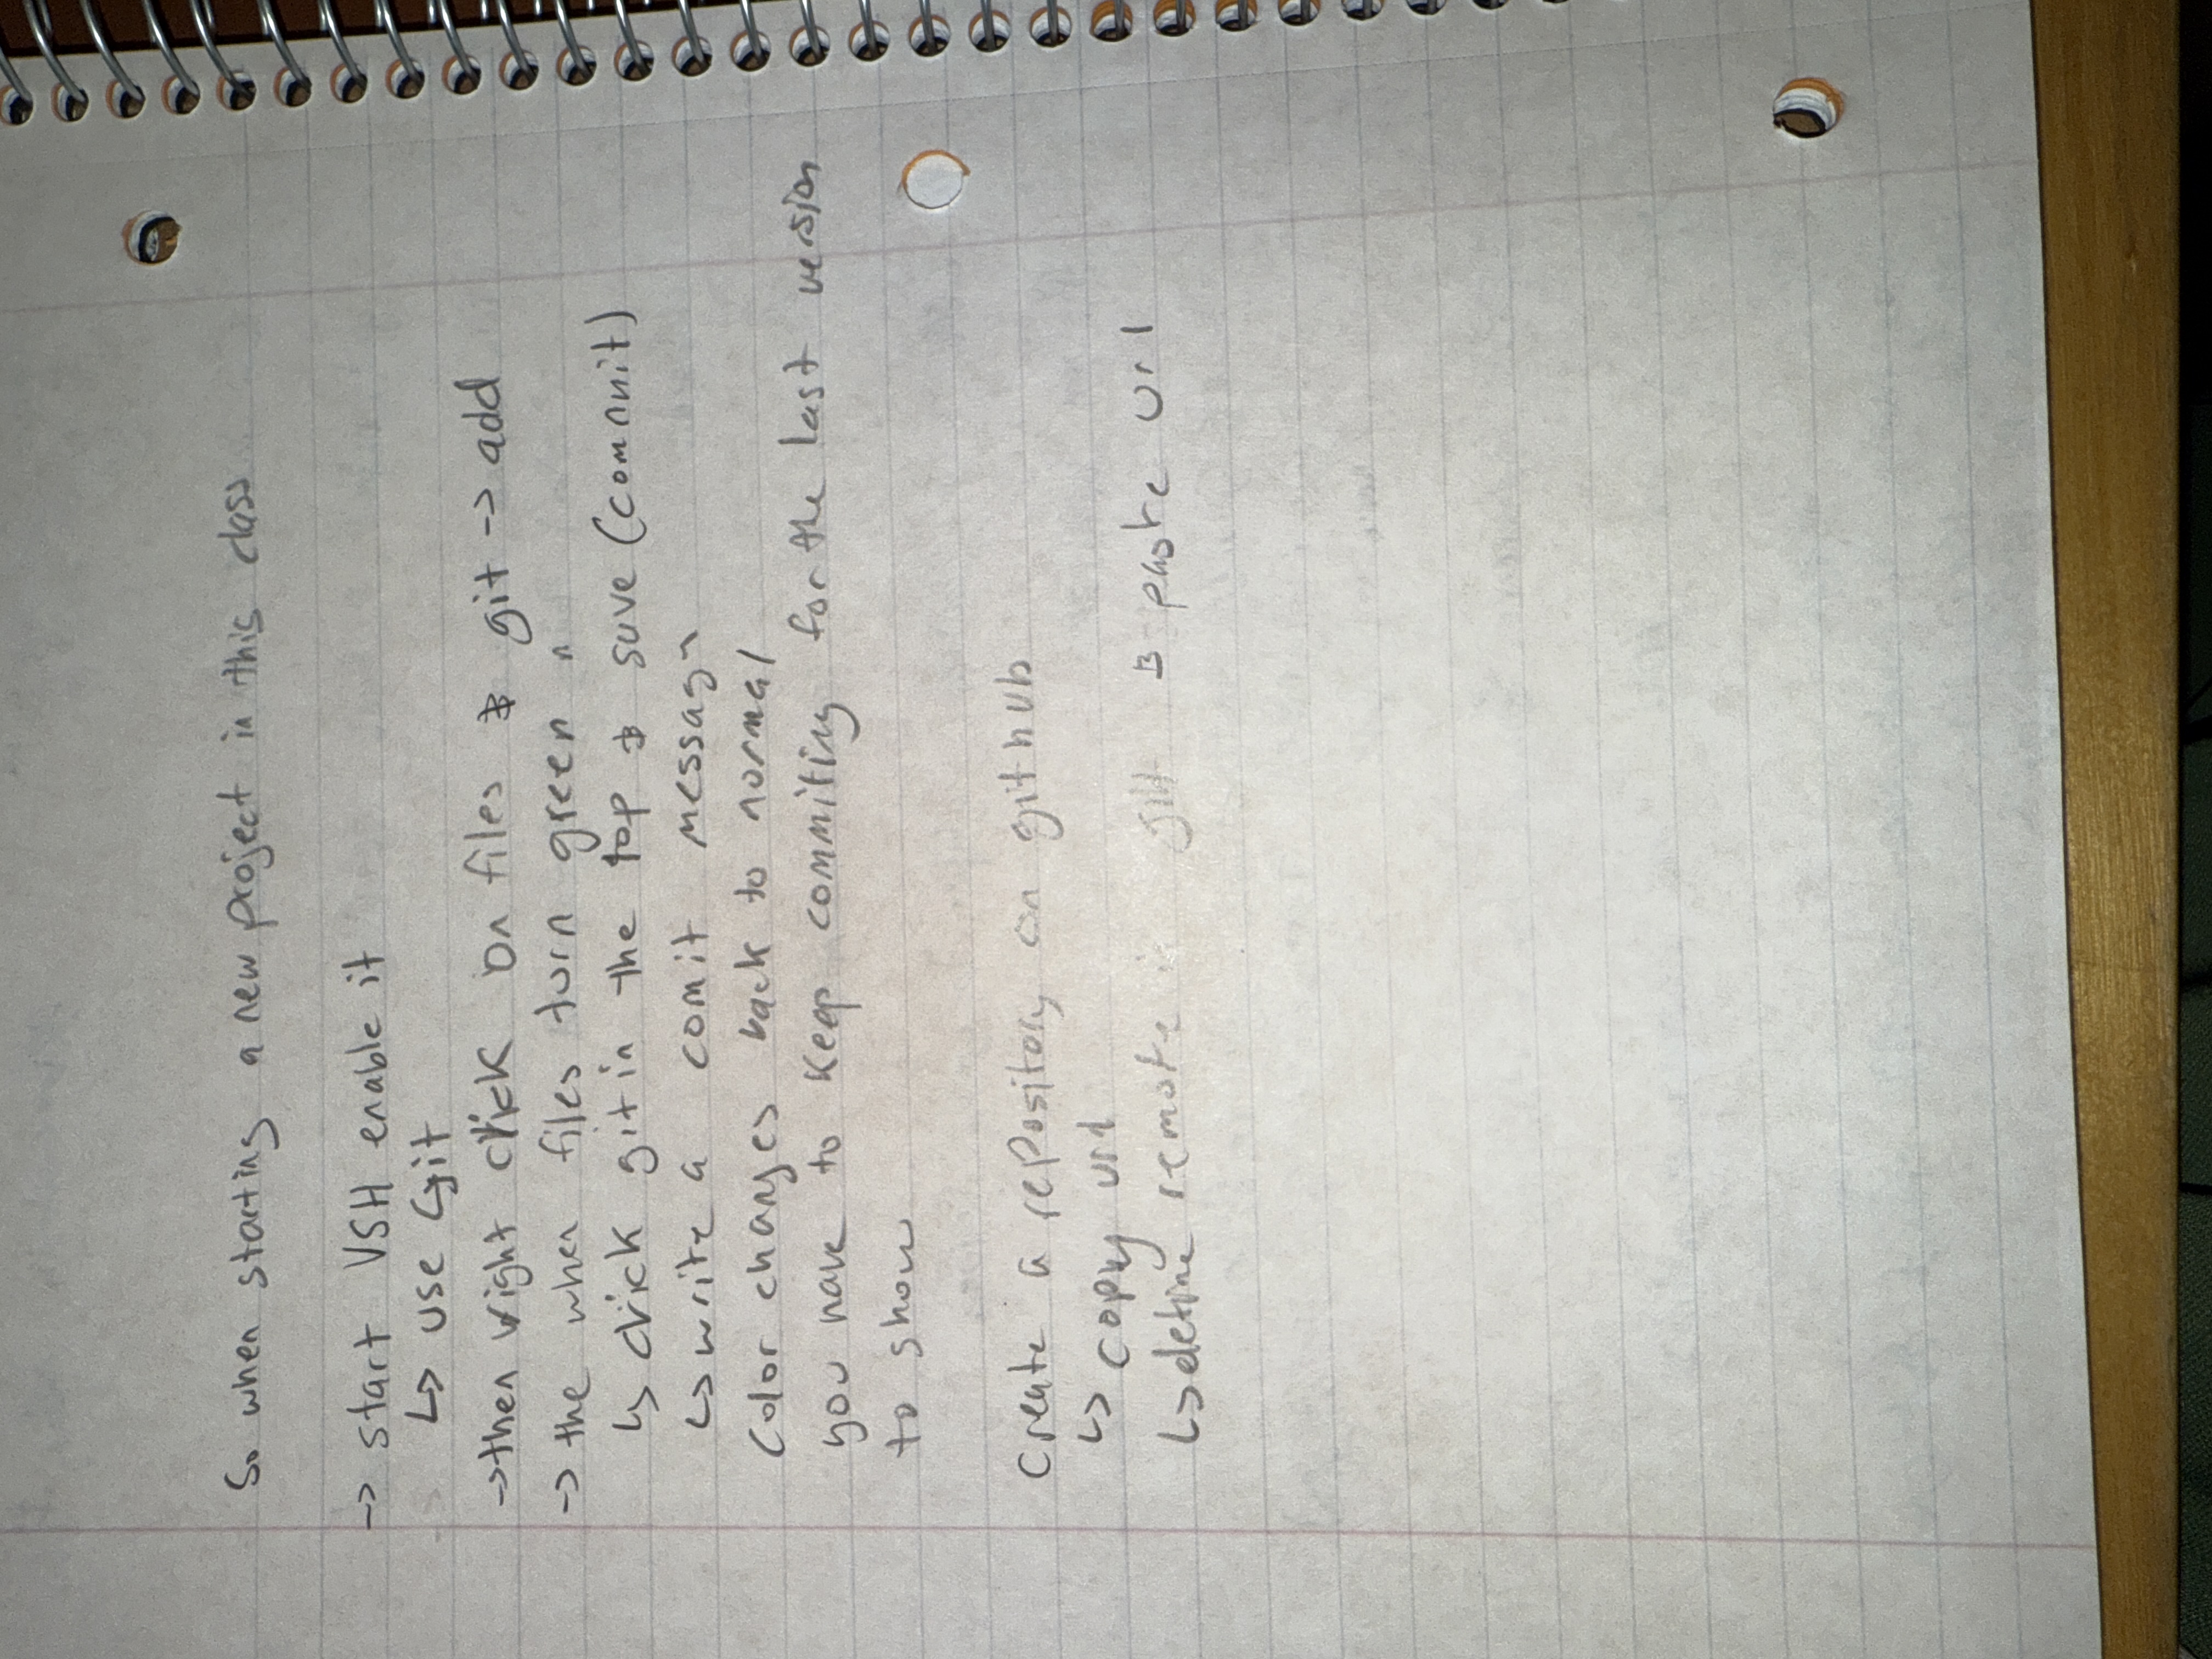 So when starting a new project in this class
-> start VSH enable it
↳ use Git
-> then right click on files & git -> add
-> the when files turn green n
↳ click git in the top & save (commit)
↳ write a comit message
Color changes back to normal
you have to keep commiting for the last version
to show
Create a repository on github
↳ copy url
↳ define remote in git & paste url